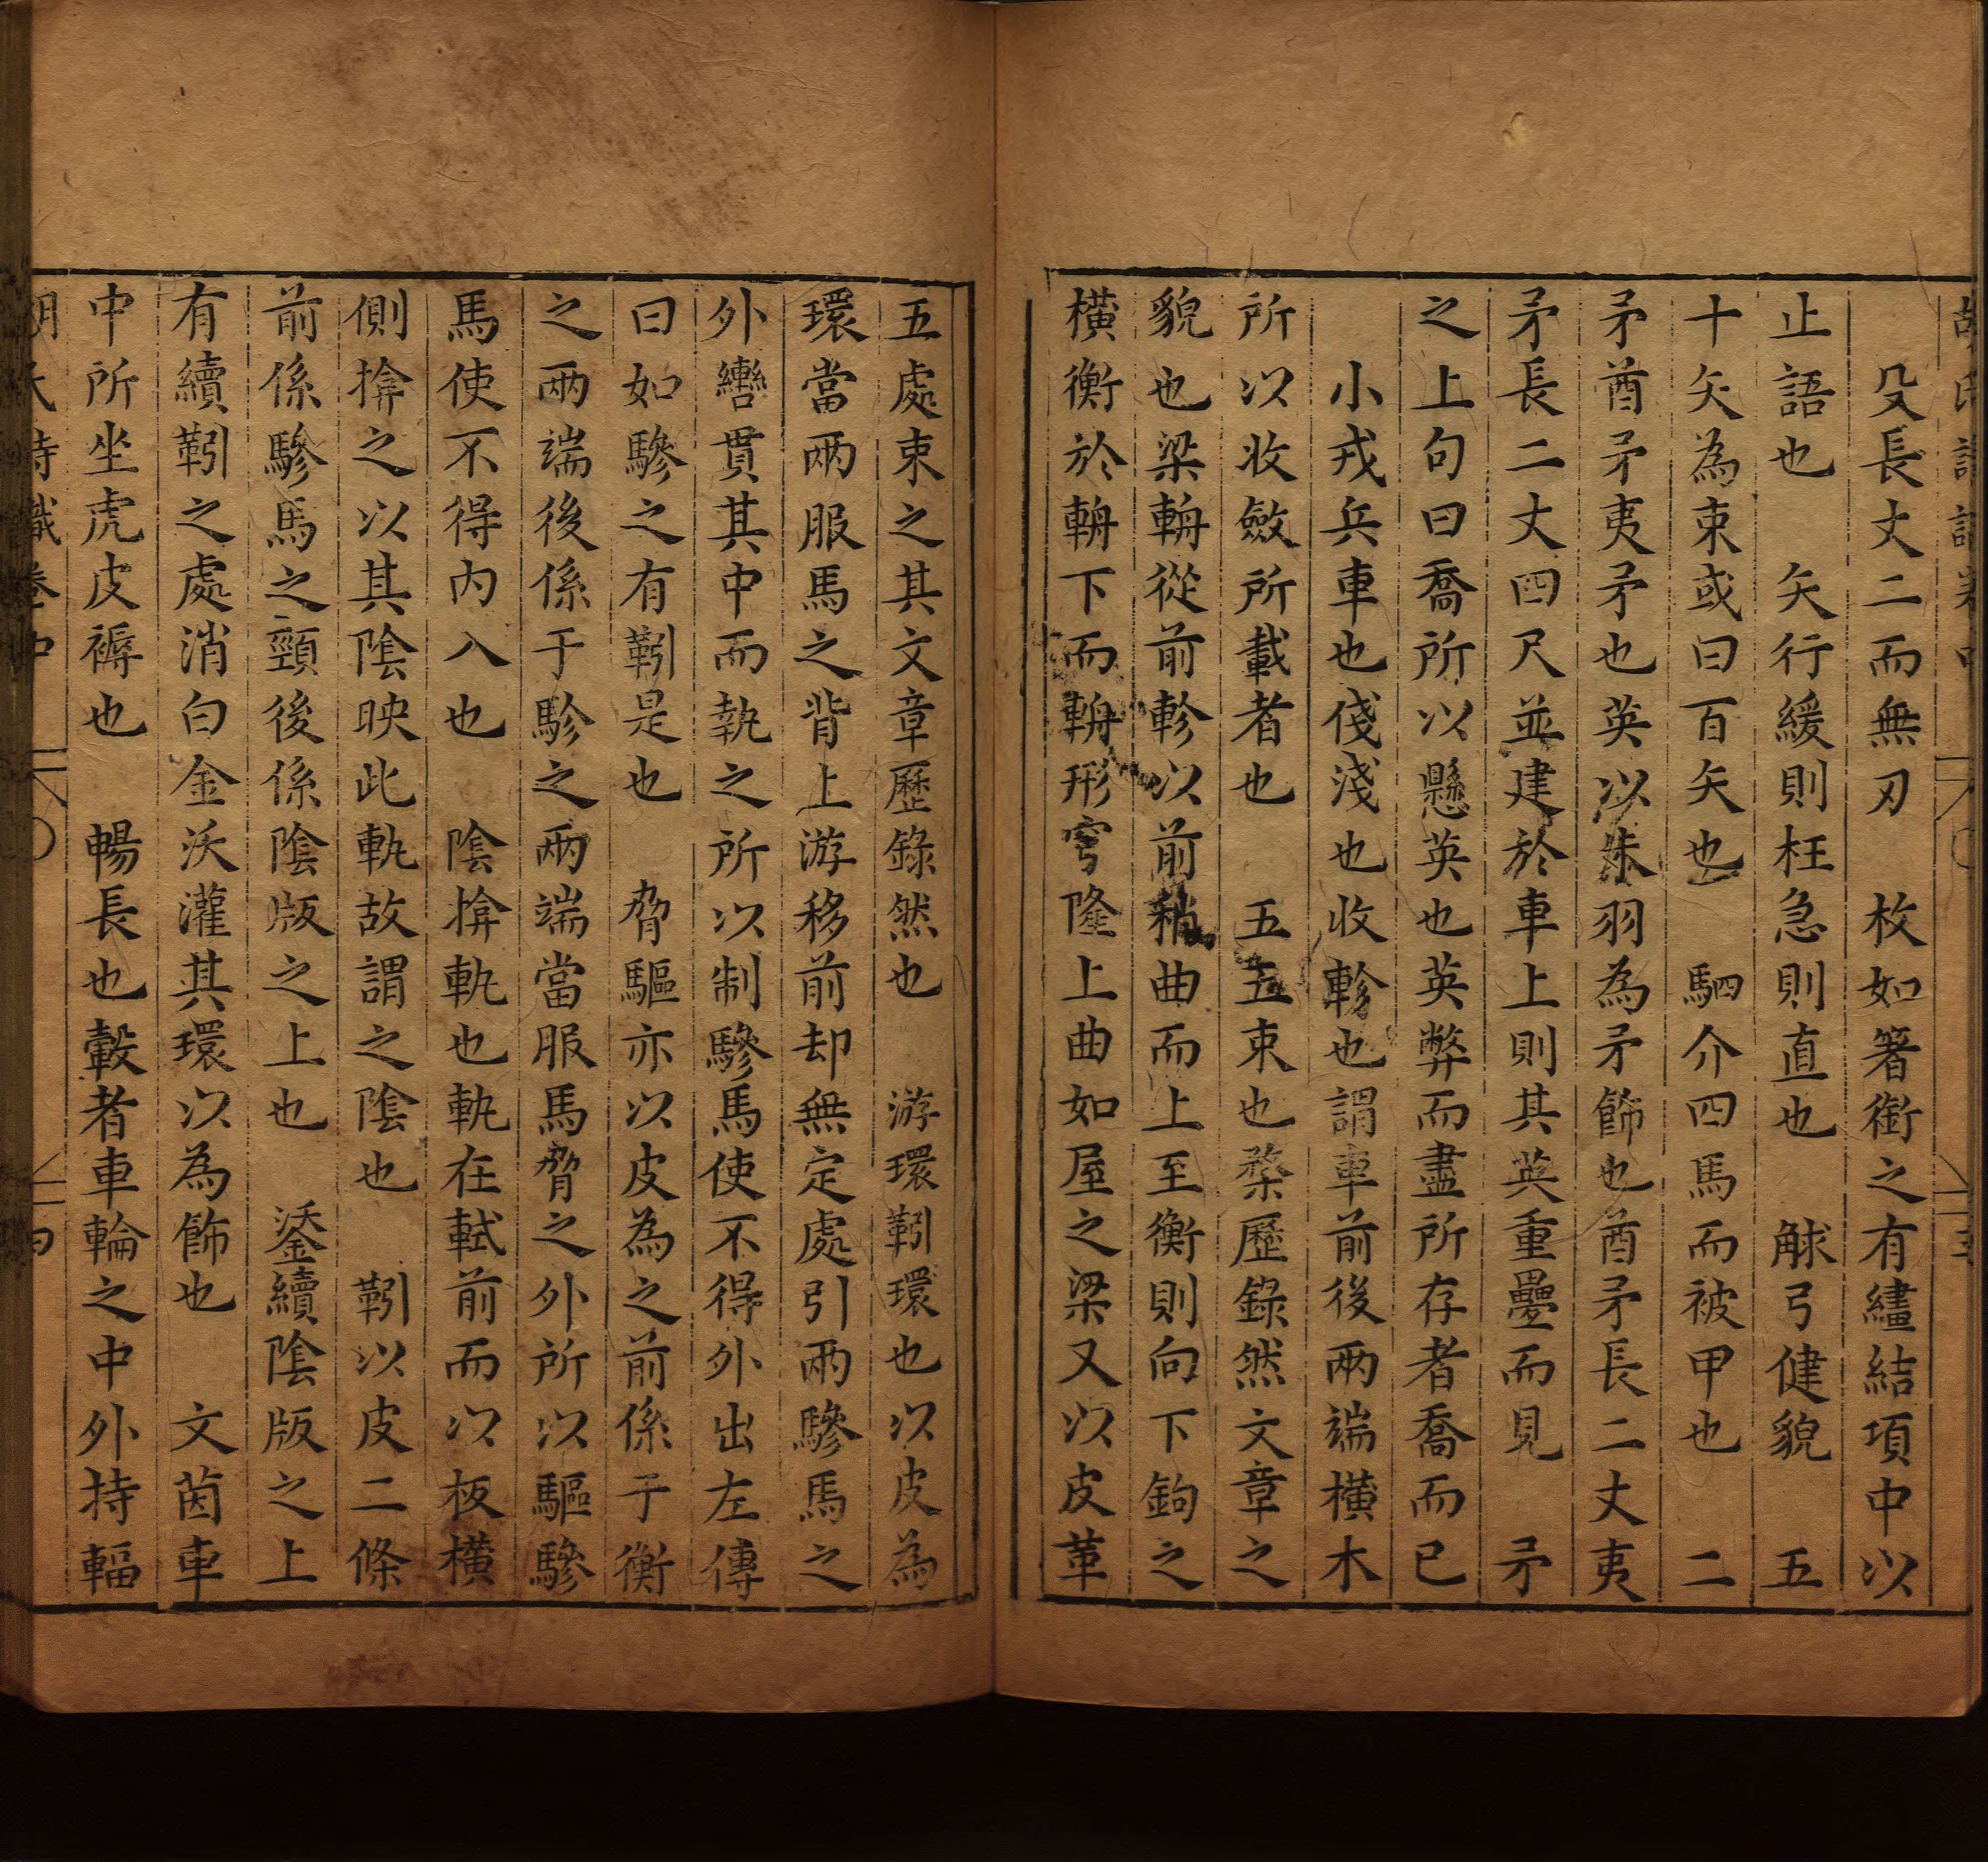 殳長丈二而無刃　枚如箸銜之有繣結項中以
止語也　矢行緩則枉急則直也　觩弓健貌　五
十矢為束或曰百矢也　駟介四馬而被甲也　二
矛酋矛夷矛也英以朱羽為矛飾也酋矛長二丈夷
矛長二丈四尺並建於車上則其英重疊而見　矛
之上句曰喬所以懸英也英弊而盡所存者喬而已
小戎兵車也俴淺也收軫也謂車前後兩端橫木
所以收斂所載者也　五五束也楘歷錄然文章之
貌也梁輈從前軫以前稍曲而上至衡則向下鉤之
橫衡於輈下而輈形穹隆上曲如屋之梁又以皮革
五處束之其文章歷錄然也　游環靷環也以皮為
環當兩服馬之背上游移前却無定處引兩驂馬之
外轡貫其中而執之所以制驂馬使不得外出左傳
曰如驂之有靷是也　脅驅亦以皮為之前係于衡
之兩端後係于軫之兩端當服馬脅之外所以驅驂
馬使不得內入也　陰揜軓也軓在軾前而以板橫
側揜之以其陰映此軓故謂之陰也　靷以皮二條
前係驂馬之頸後係陰版之上也　鋈續陰版之上
有續靷之處消白金沃灌其環以為飾也　文茵車
中所坐虎皮褥也　暢長也轂者車輪之中外持輻